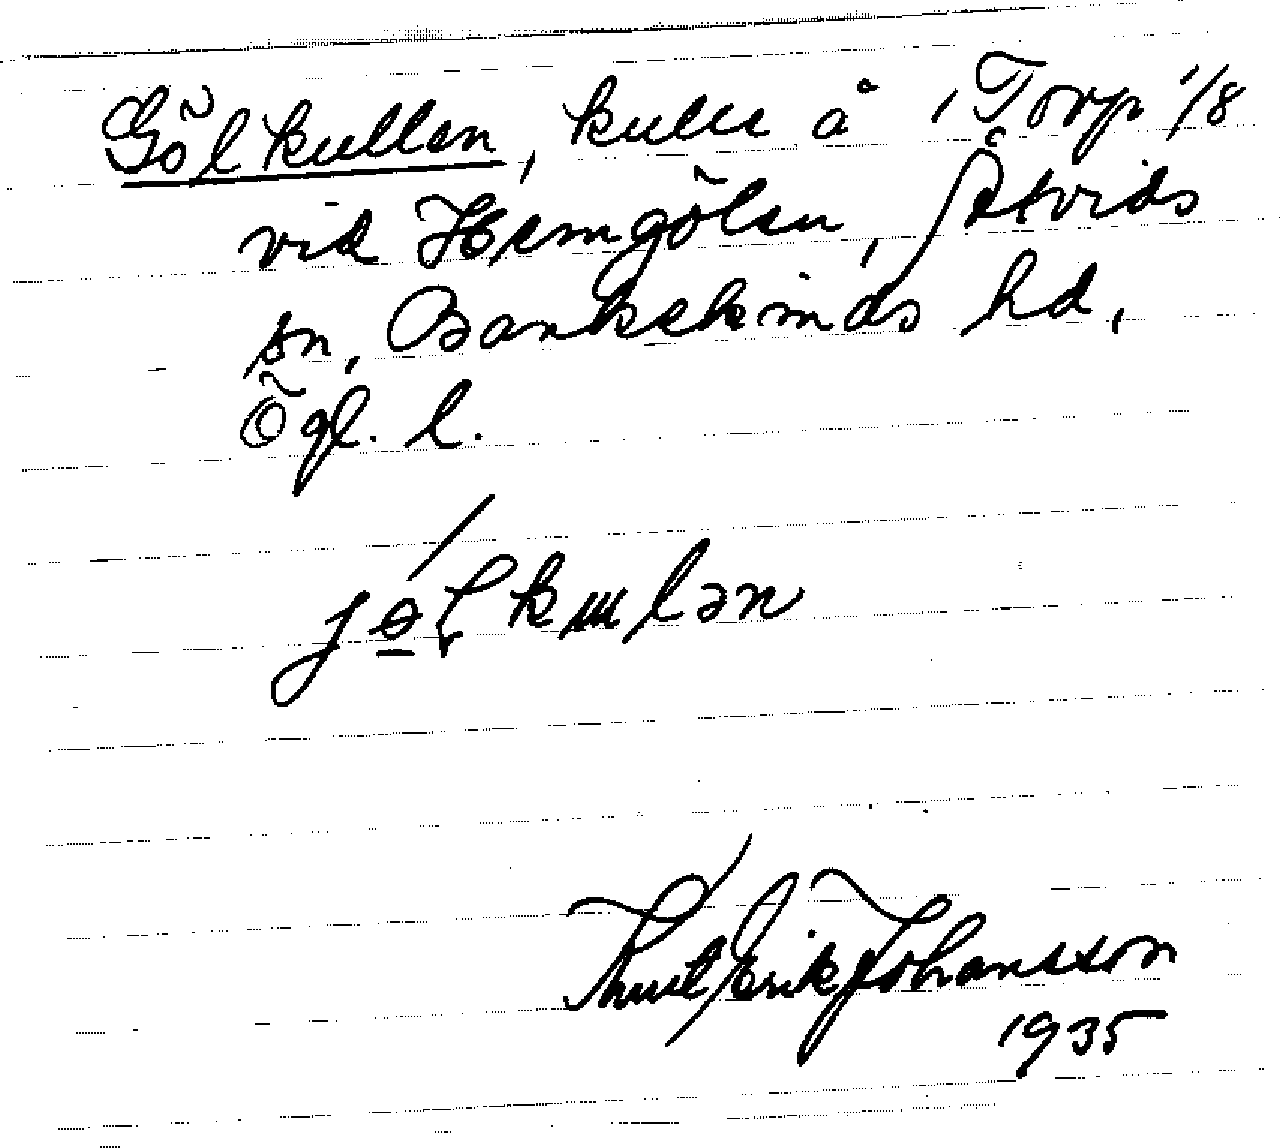 Gölkullen, kulle å Torp 1/8
vid Hemgölen, Åtvids
sn, Bankekinds hd,
Ögl. l.
Knut Erik Johansson
1935